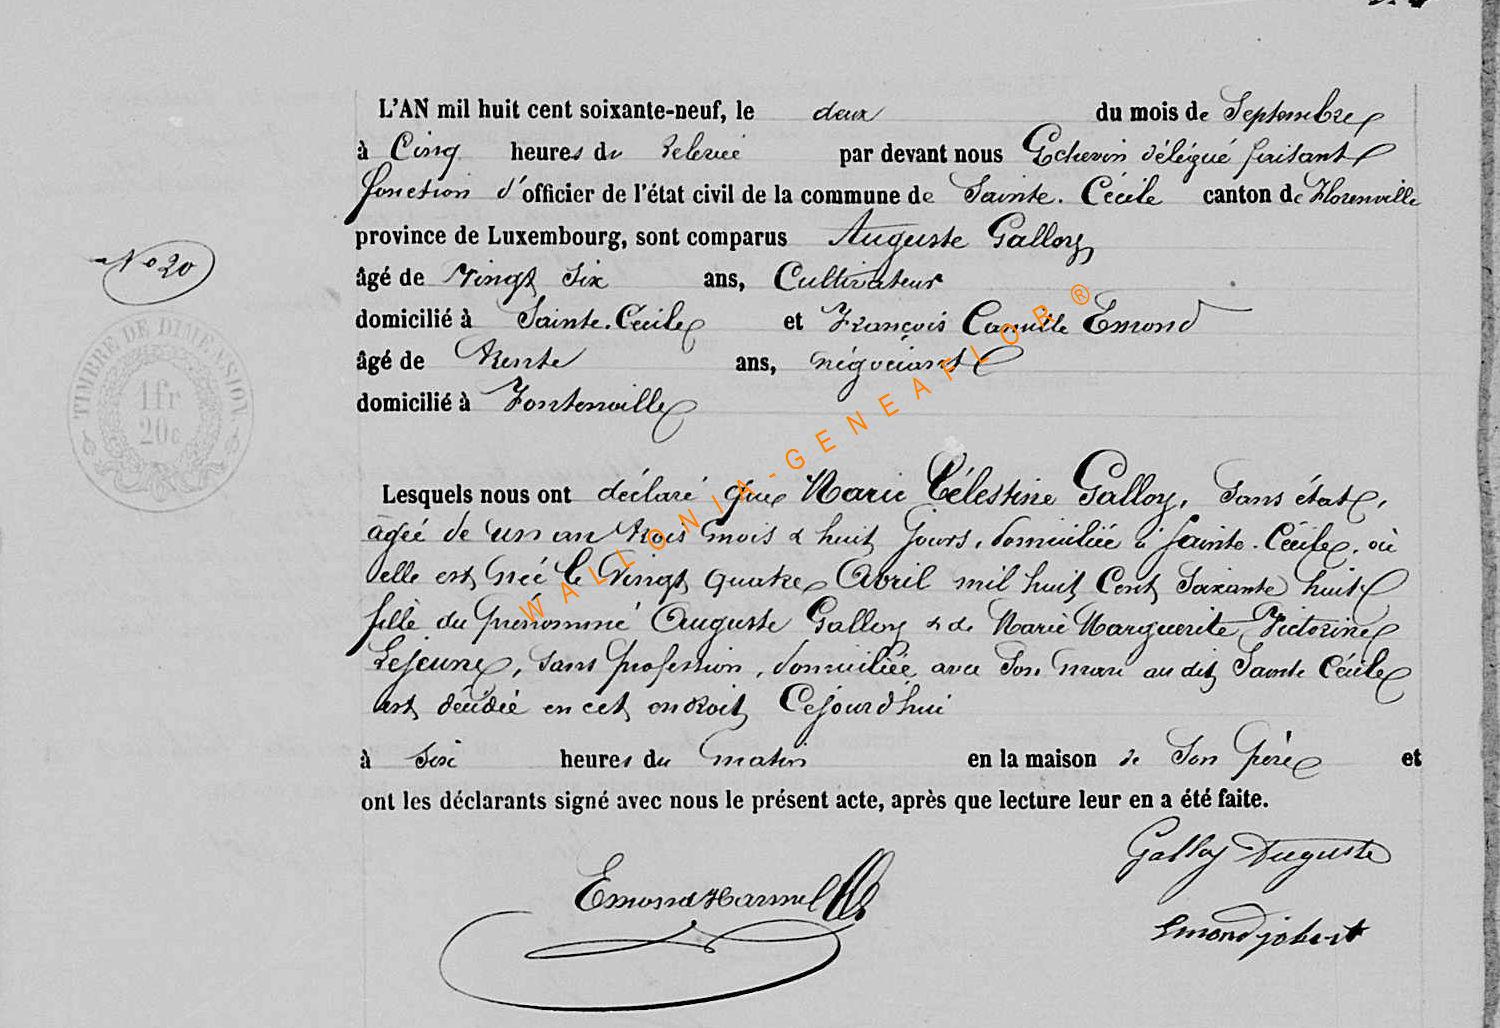 L'AN mil huit cent soixante-neuf, le deux du mois de Septembre
à Cinq heures du relevée par devant nous Echevin délégué faisant
fonction d'officier de l'état civil de la commune de Sainte. Cécile canton de Florenville
province de Luxembourg, sont comparus Auguste Galloy
âgé de Vingt Six ans, Cultivateur
domicilié à Sainte. Cécile et François Camille Emond
âgé de trente ans, négociant
domicilié à Fontenoille
Lesquels nous ont déclaré que Marie Célestine Galloy, Sans état,
agée de un an trois mois & huit jours, domiciliée à Sainte. Cécile, où
elle est née le Vingt quatre Avril mil huit Cent Soixante huit
fille du prénommé Auguste Galloy & de Marie Marguerite Victorine
Lejeune, Sans profession, domiciliée avec Son mari au dit Sainte Cécile
est décédée en cet endroit Cejourd'hui
à Six heures du matin en la maison de Son père et
ont les déclarants signé avec nous le présent acte, après que lecture leur en a été faite.
Galloy Auguste
Emond Harmel
Emond jobert
No 20
TIMBRE DE DIMENSION.
1fr
20c
WALLONIA-GENEAFLOR®